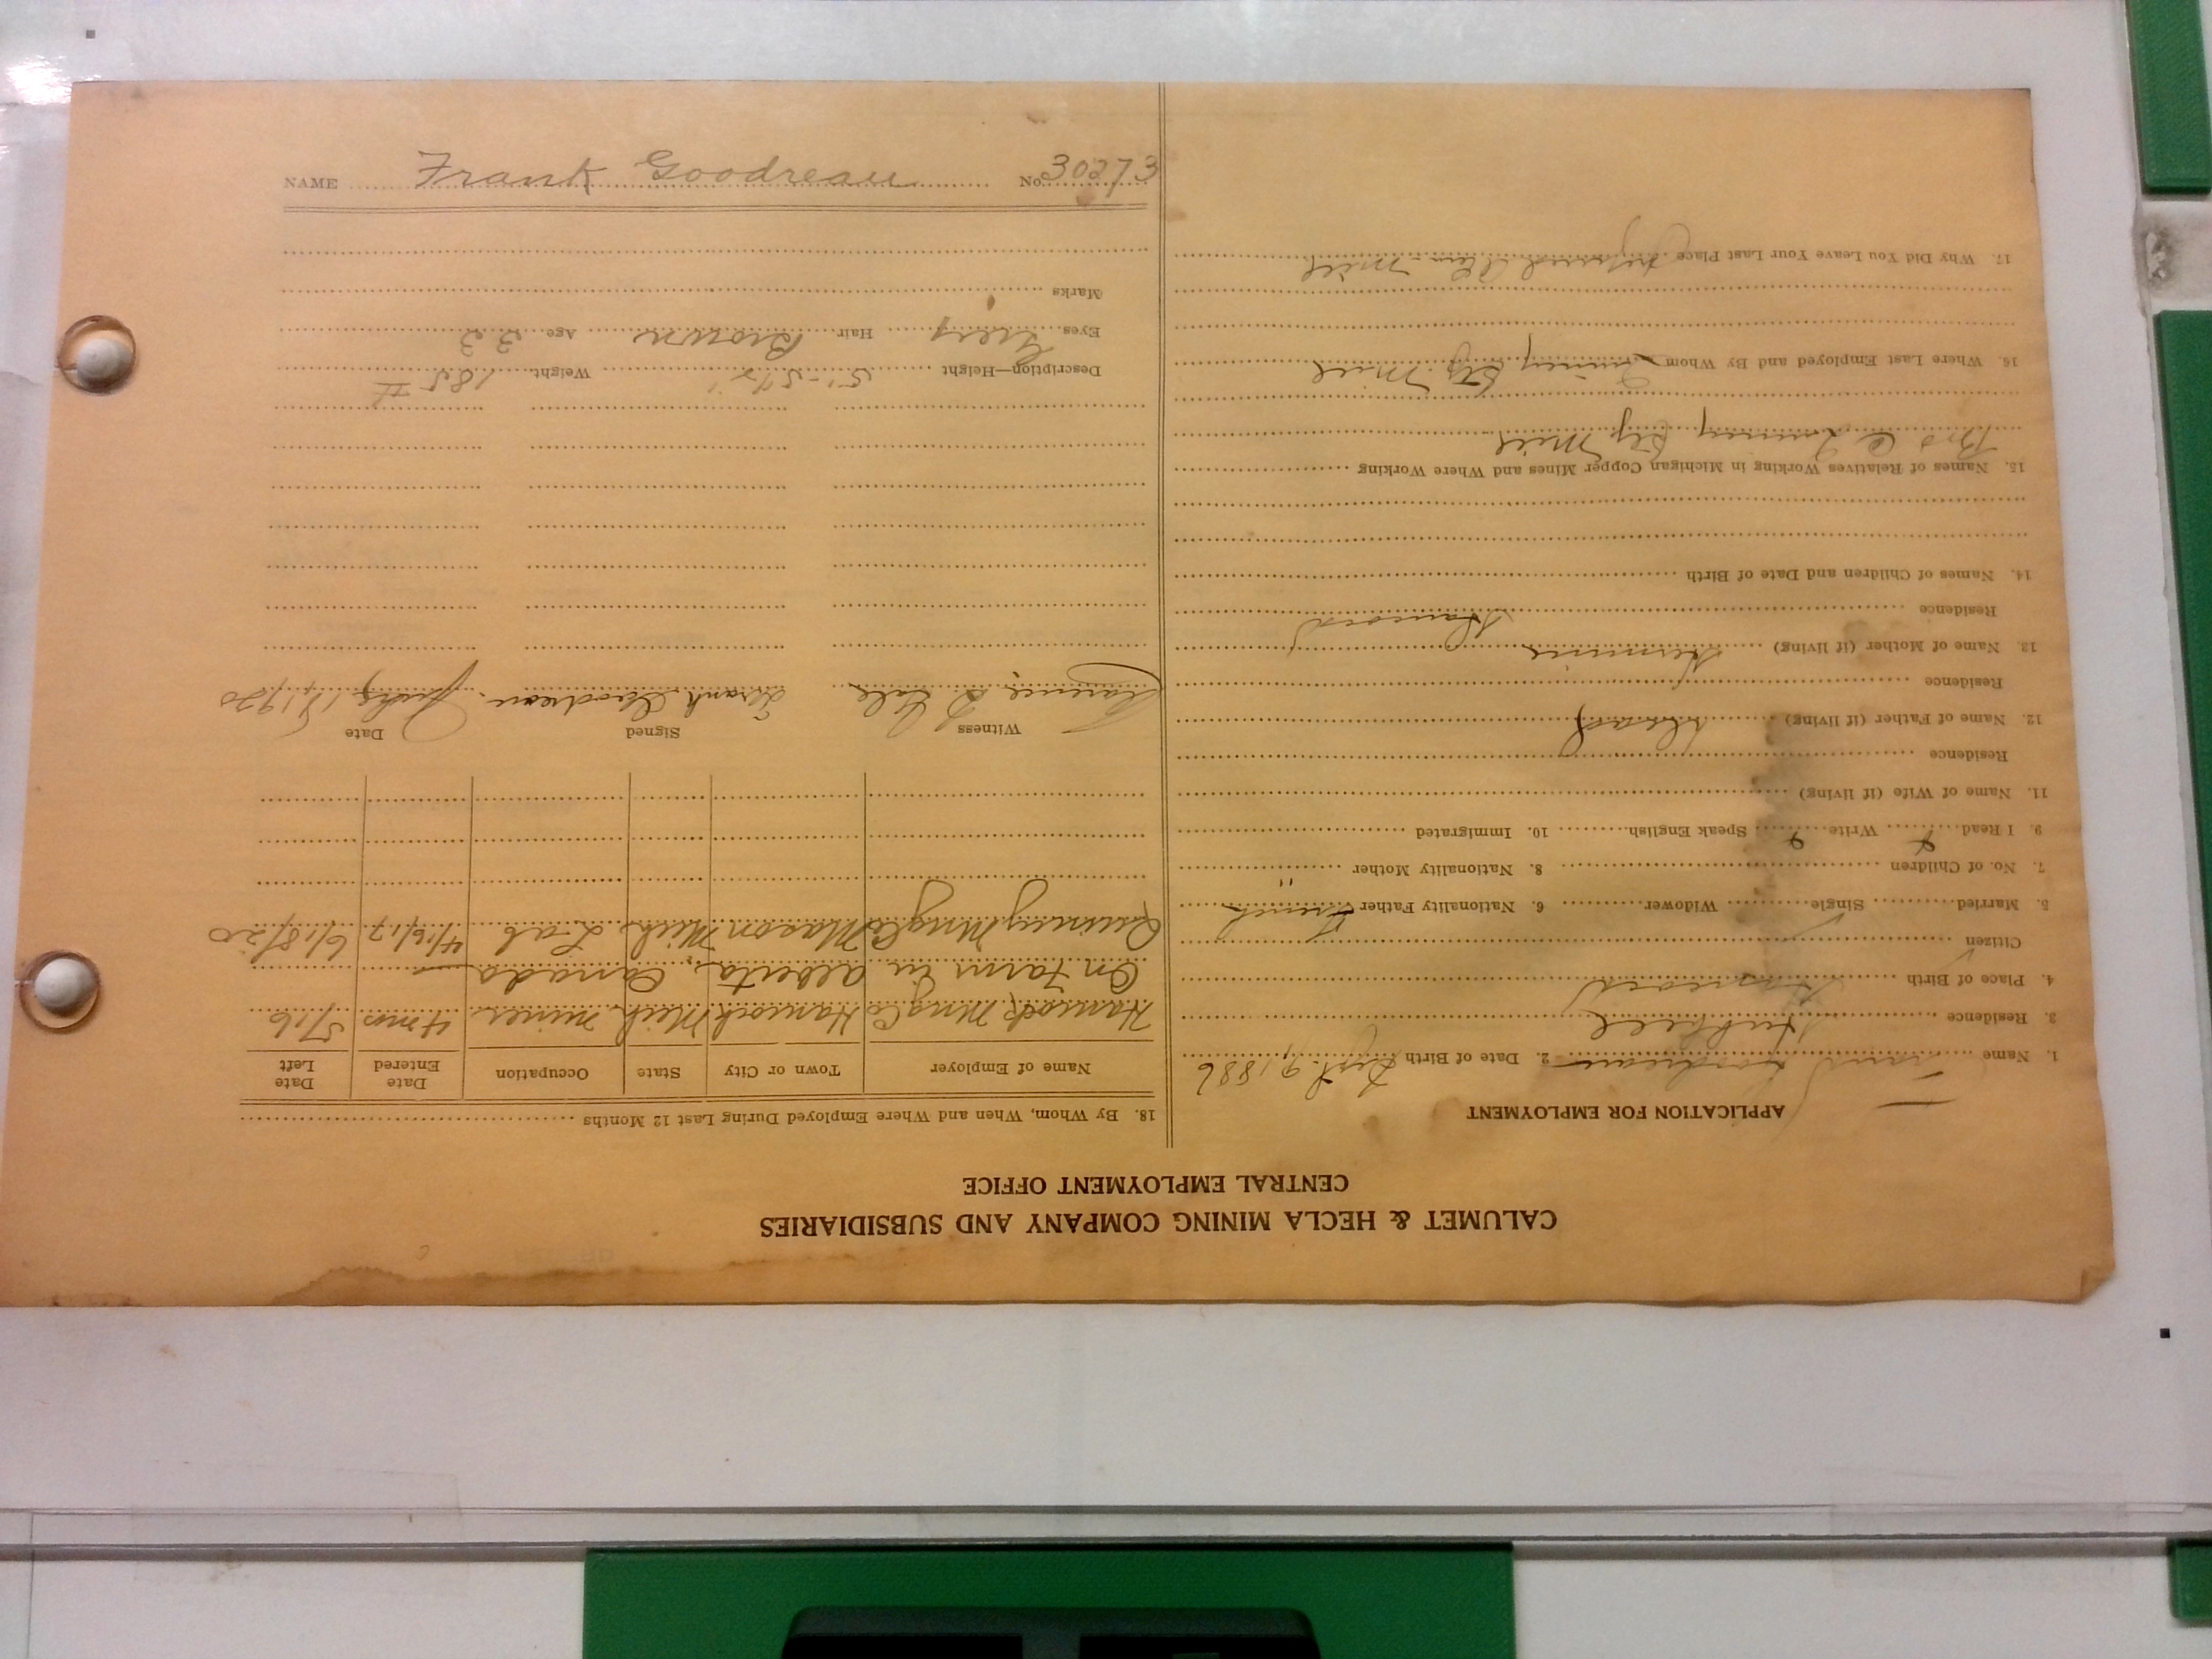 CALUMET & HECLA MINING COMPANY AND SUBSIDIARIES
CENTRAL EMPLOYMENT OFFICE
APPLICATION FOR EMPLOYMENT
1. Name Frank Goodreau 2. Date of Birth Sept. 9, 1886
3. Residence Hubbell
4. Place of Birth Hancock
Citizen
5. Married Single Widower 6. Nationality Father French
7. No. of Children 8. Nationality Mother "
9. I Read Write Speak English 10. Immigrated
11. Name of Wife (if living)
Residence
12. Name of Father (if living) dead
Residence
13. Name of Mother (if living)
Residence Hancock
14. Names of Children and Date of Birth
15. Names of Relatives Working in Michigan Copper Mines and Where Working
Bro @ Quincy Stp Mill
16. Where Last Employed and By Whom Quincy Stp Mill
17. Why Did You Leave Your Last Place mill
18. By Whom, When and Where Employed During Last 12 Months
Name of Employer Town or City State Occupation Date Entered Date Left
Hancock Mng Co Hancock Mich. miner 4 mos 5/16
On Farm in Alberta, Canada
Quincy Mng Co Mason Mich. Lab 4/16/17 6/18/20
Witness Signed Date
Clarence Frank Goodreau. July 1, 1920
Description—Height 5'-5½" Weight 185 #
Eyes Grey Hair Brown Age 33
Marks
NAME Frank Goodreau No. 30273